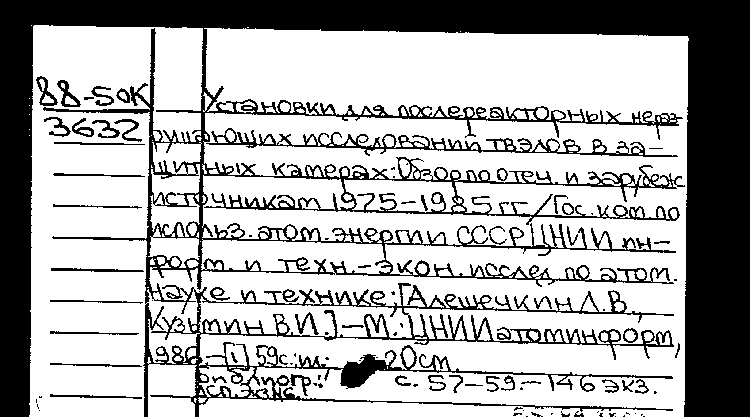 88-5 ОК Установки для послереакторных нераз-
3632 рушающих исследований твэлов в за-
щитных камерах: Обзор по отеч. и зарубеж
источникам 1975-1985 гг. / Гос. ком. по
использ. атом. энергии СССР, ЦНИИ ин-
форм. и техн.-экон. исслед. по атом.
науке и технике; [Алешечкин Л.В.,
Кузьмин В.И.].-М.: ЦНИИатоминформ,
1986.-[1] 59с.: ил.; 20см.
Библиогр.: с. 57-59.-146 экз.